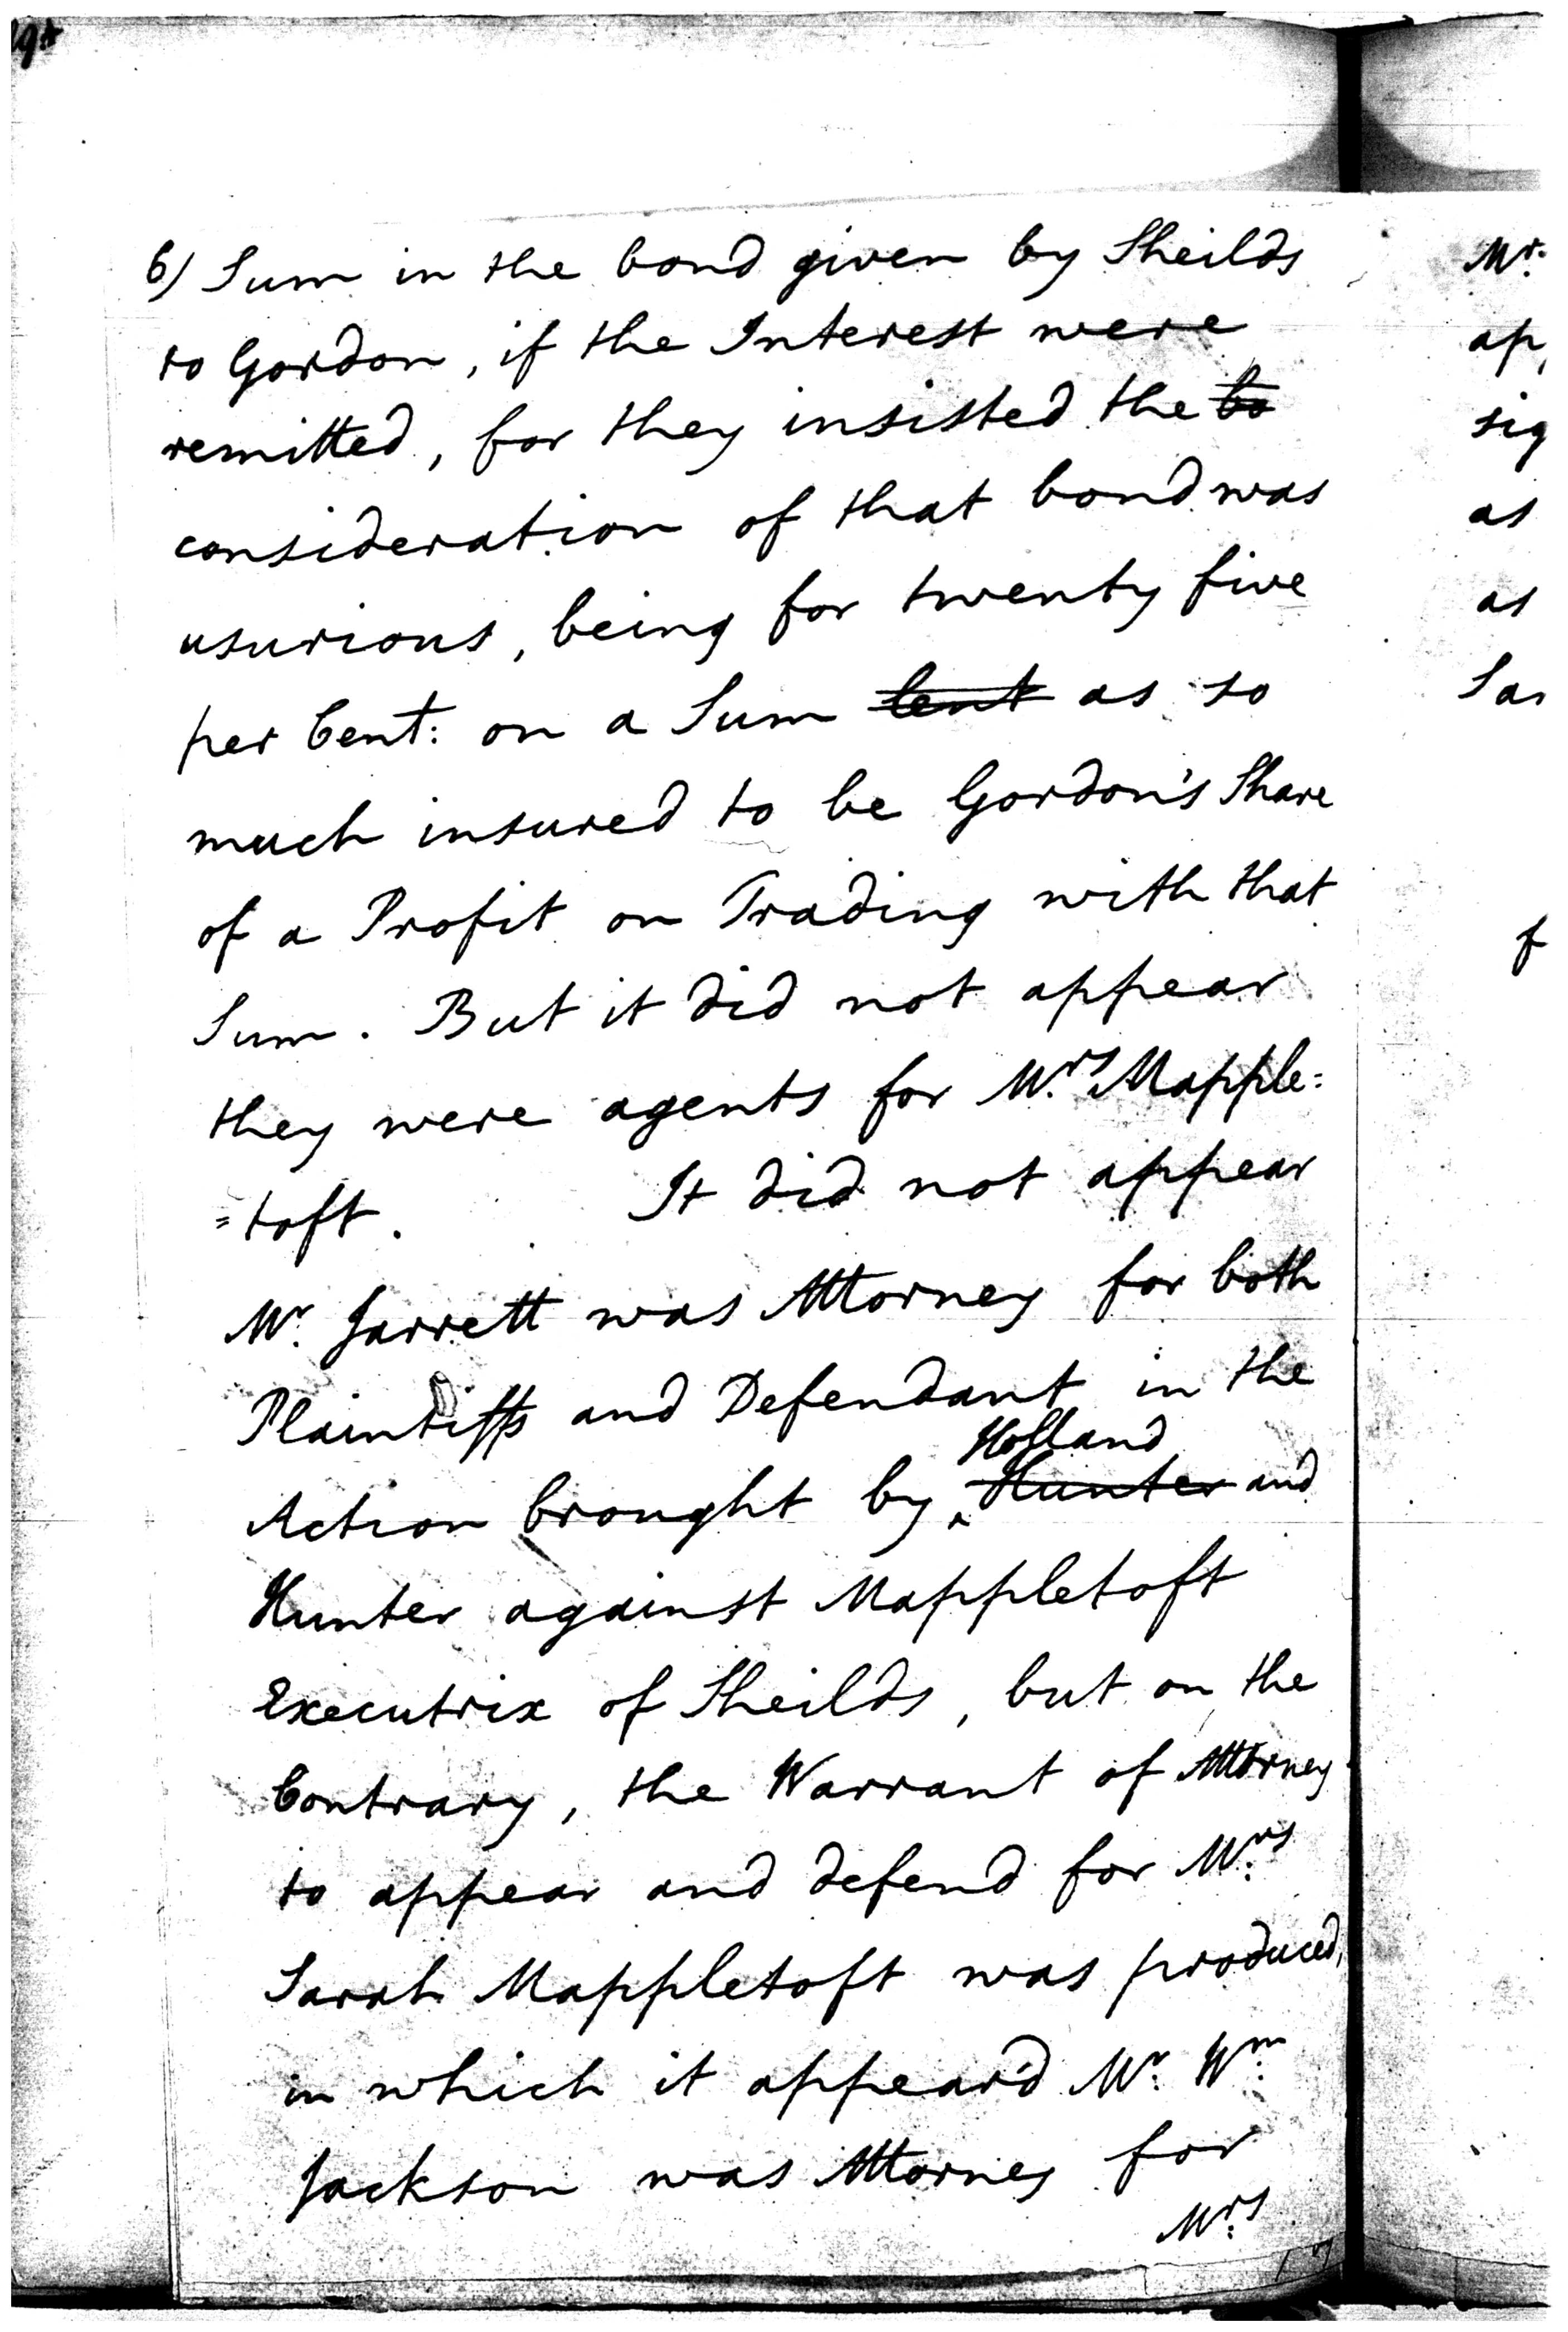 6) Sum in the bond given by Sheilds
to Gordon, if the Interest were
remitted, for they insisted the ~~bo~~
consideration of that bond was
usurious, being for twenty five
per Cent: on a Sum ~~lent~~ as so
much insured to be Gordon's Share
of a Profit on Trading with that
Sum. But it did not appear
they were agents for Mrs. Mapple:
=toft. It did not appear
Mr. Jarrett was Attorney for both
Plaintiffs and Defendant in the
Holland
Action brought by ‸ ~~Hunter~~ and
Hunter against Mappletoft
Executrix of Sheilds, but on the
Contrary, the Warrant of Attorney
to appear and defend for Mrs.
Sarah Mappletoft was produced,
in which it appear'd Mr. Wm.
Jackson was Attorney for
Mrs.
Mr.
ap
sig
as
as
Sar
f